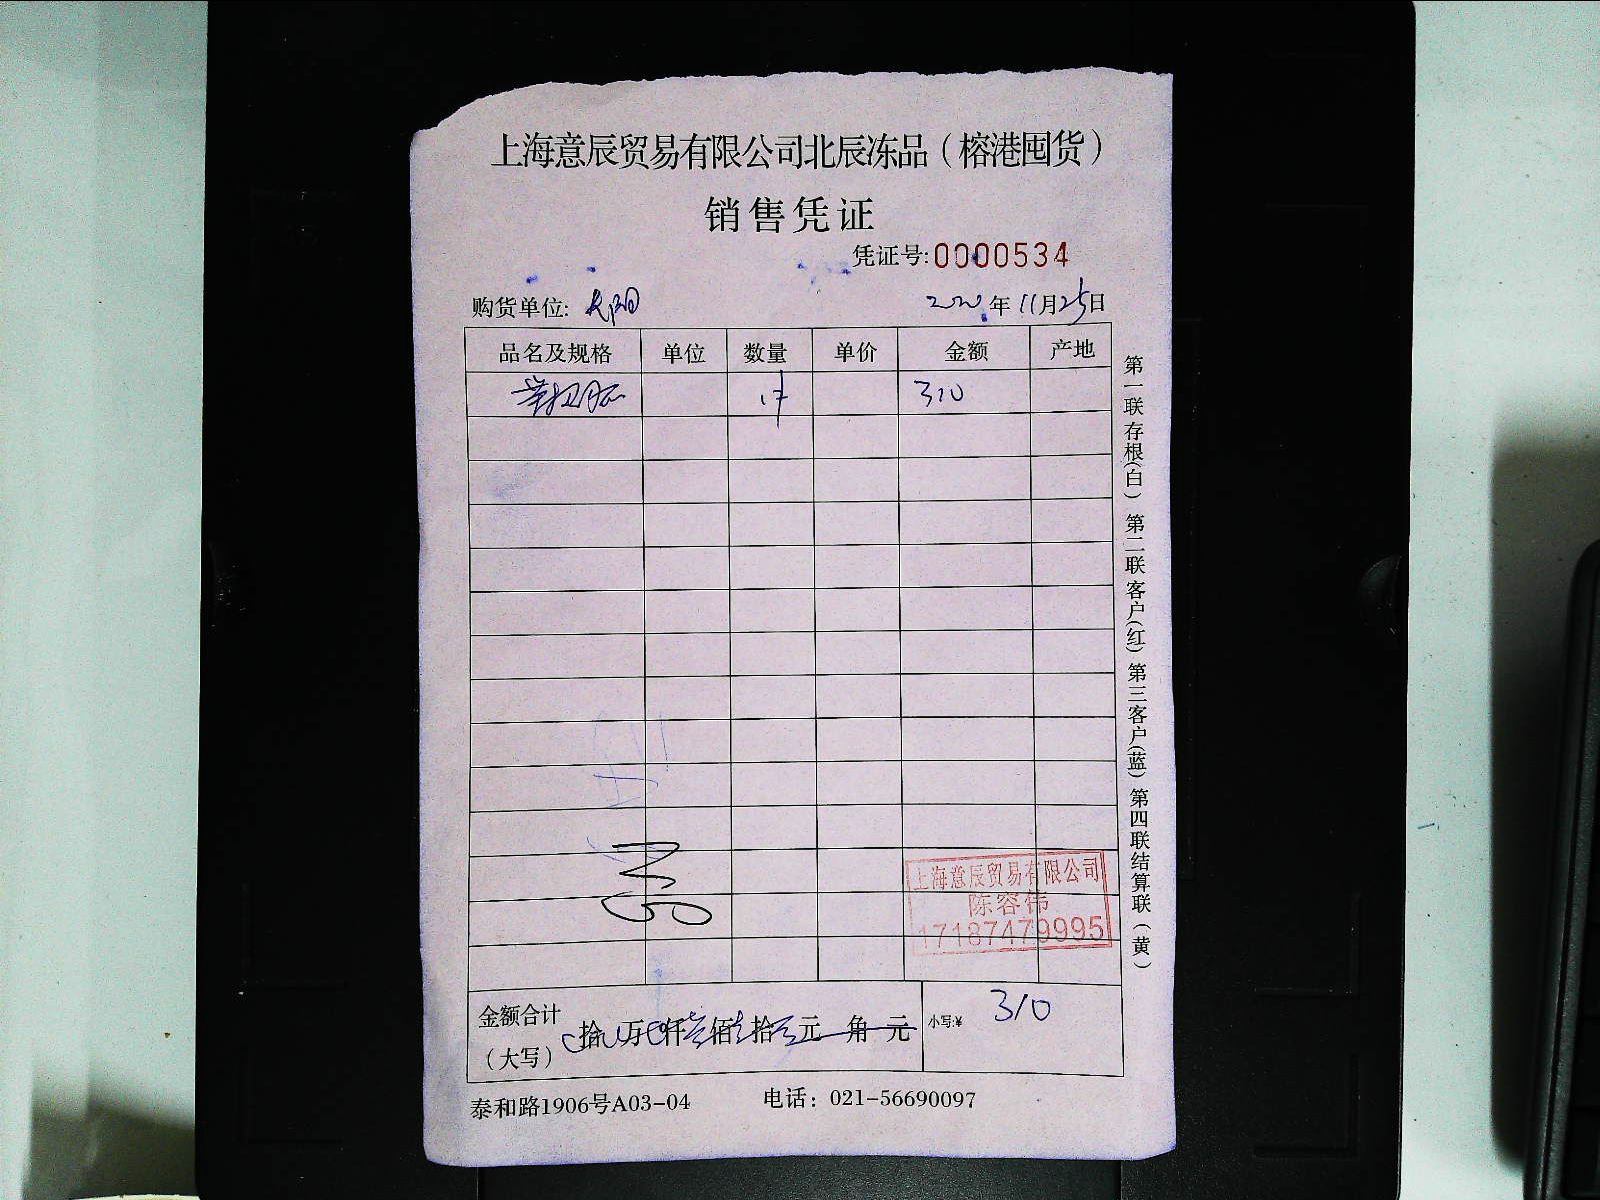 上海意辰贸易有限公司北辰冻品（榕港囤货）
销售凭证
凭证号:0000534
购货单位:
2020年11月25日
品名及规格 单位 数量 单价 金额 产地
310
第一联存根(白) 第二联客户(红) 第三客户(蓝) 第四联结算联(黄)
上海意辰贸易有限公司
陈容伟
17187479995
金额合计 拾 万 仟叁佰壹拾 元 角 元 小写:¥ 310
（大写）
泰和路1906号A03-04 电话：021-56690097